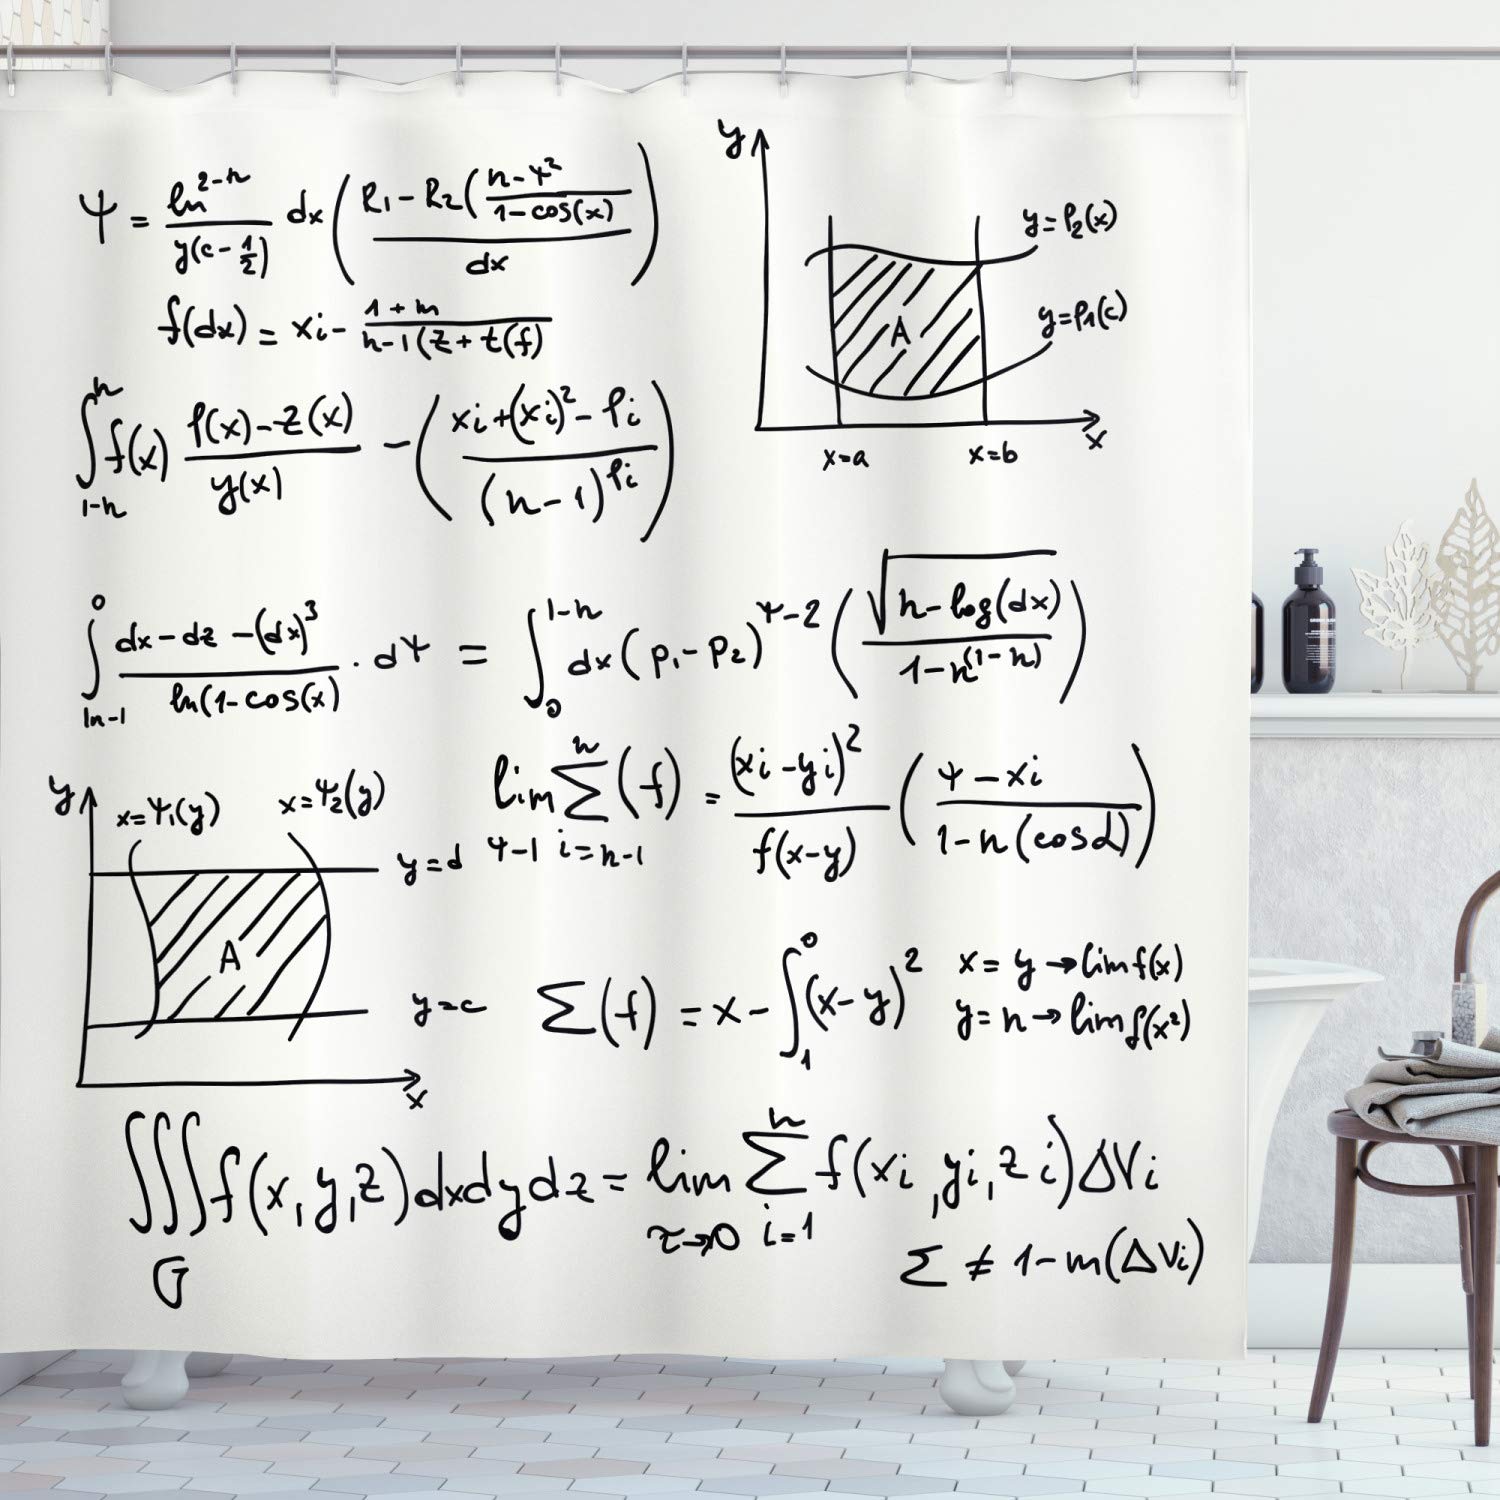 ψ = ln^(2-n) / y(c - 1/2) dx ( R₁ - R₂( n-ψ² / 1-cos(x) ) / dx )
f(dx) = xi - 1+m / n-1(z+t(f)
∫_(1-n)^n f(x) ρ(x)-z(x) / y(x) - ( xi+(xi)²-ρi / (n-1)^ρi )
y
y=ρ₂(x)
y=ρ₁(c)
A
x=a x=b x
∫_(ln-1)^0 dx-dz-(dx)³ / ln(1-cos(x) · dψ = ∫_0^(1-n) dx(p₁-p₂)^(ψ-2) ( √n-log(dx) / 1-n^(1-n) )
y x=ψ₁(y) x=ψ₂(y)
y=d
A
y=c
x
lim_(ψ-1) Σ_(i=n-1)^n (f) = (xi-yi)² / f(x-y) ( ψ-xi / 1-n(cosd) )
Σ(f) = x - ∫_1^0 (x-y)² x=y→limf(x)
y=n→limf(x²)
∫∫∫_G f(x,y,z)dxdydz = lim_(τ→0) Σ_(i=1)^n f(xi,yi,zi)ΔVi
Σ ≠ 1-m(ΔVi)